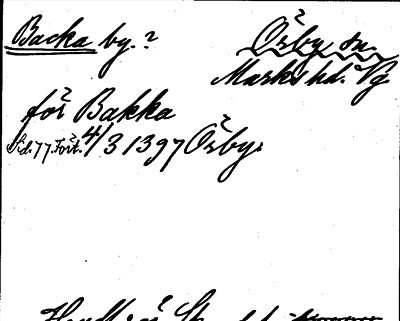 Backa by.?
Örby sn.
Marks hd. Vg
för Bakka
Sid. 77. Fört. 4/3 1397 Örby.